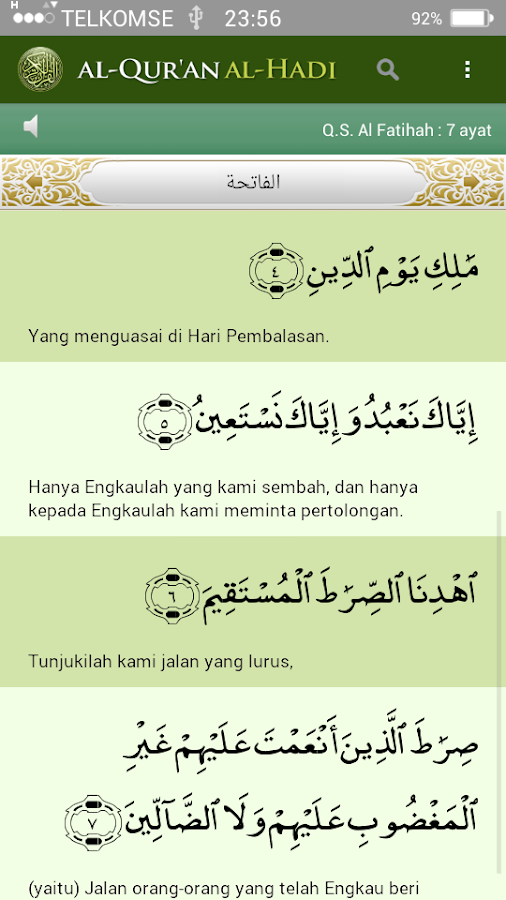 H
TELKOMSE 23:56 92%
AL-QUR'AN AL-HADI
Q.S. Al Fatihah : 7 ayat
الفاتحة
مَٰلِكِ يَوْمِ ٱلدِّينِ ٤
Yang menguasai di Hari Pembalasan.
إِيَّاكَ نَعْبُدُ وَإِيَّاكَ نَسْتَعِينُ ٥
Hanya Engkaulah yang kami sembah, dan hanya
kepada Engkaulah kami meminta pertolongan.
ٱهْدِنَا ٱلصِّرَٰطَ ٱلْمُسْتَقِيمَ ٦
Tunjukilah kami jalan yang lurus,
صِرَٰطَ ٱلَّذِينَ أَنْعَمْتَ عَلَيْهِمْ غَيْرِ
ٱلْمَغْضُوبِ عَلَيْهِمْ وَلَا ٱلضَّآلِّينَ ٧
(yaitu) Jalan orang-orang yang telah Engkau beri